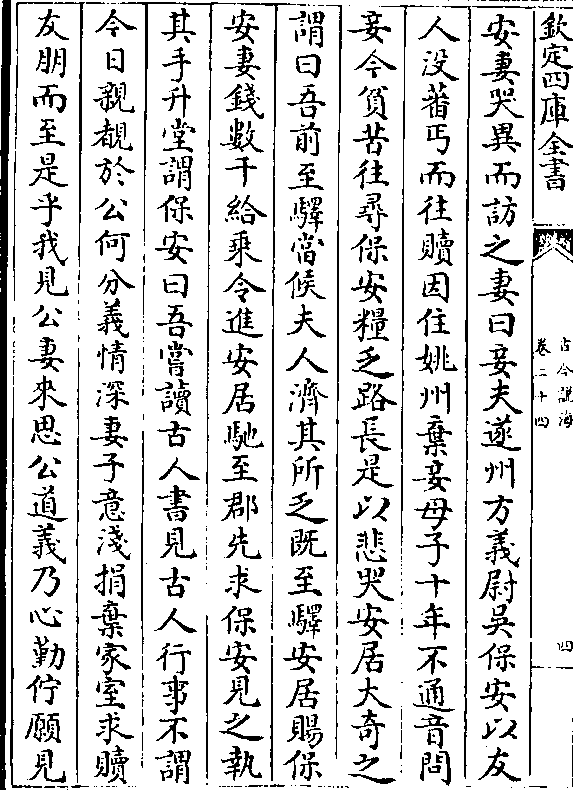 欽定四庫全書
古今說海
卷二十四
四
安妻哭異而訪之妻曰妾夫遂州方義尉吳保安以友
人没蕃丐而往贖因住姚州棄妾母子十年不通音問
妾今貧苦往尋保安糧乏路長是以悲哭安居大奇之
謂曰吾前至驛當候夫人濟其所乏既至驛安居賜保
安妻錢數千給乘令進安居馳至郡先求保安見之執
其手升堂謂保安曰吾嘗讀古人書見古人行事不謂
今日親覩於公何分義情深妻子意淺捐棄家室求贖
友朋而至是乎我見公妻來思公道義乃心勤佇願見